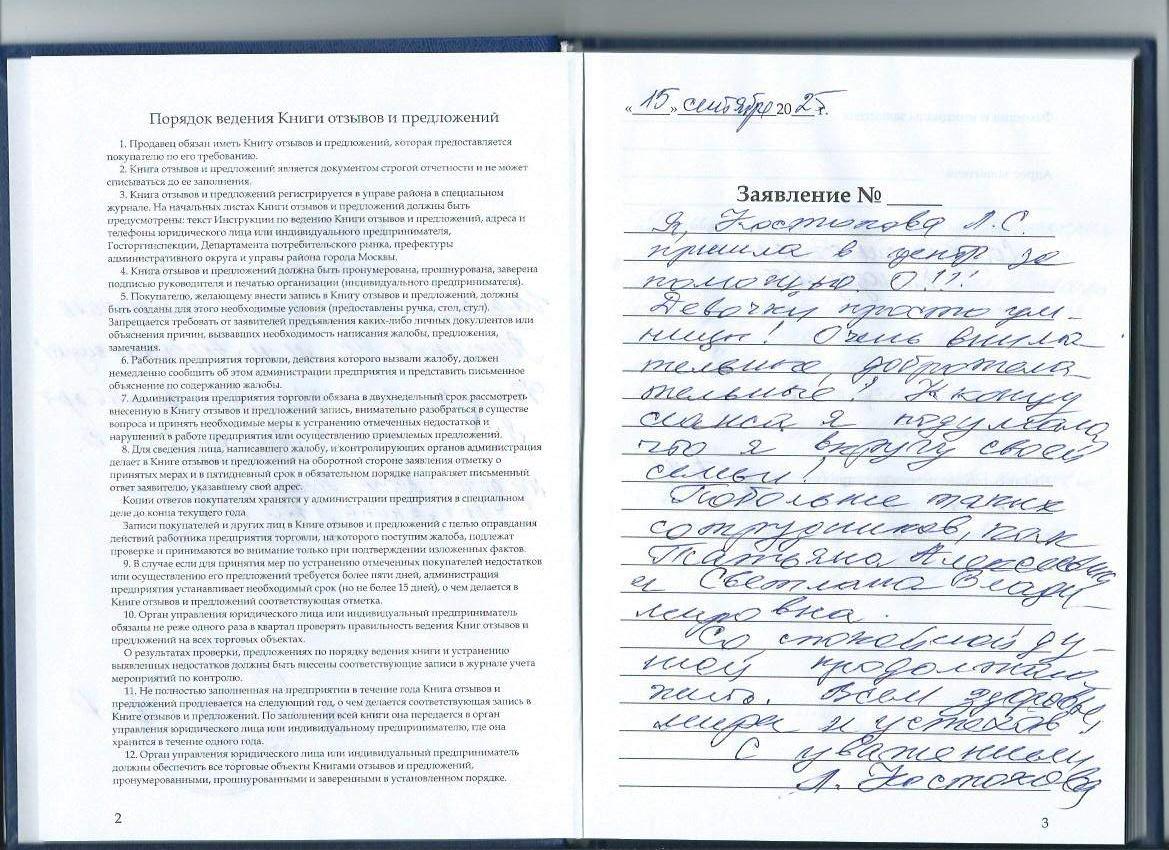 Порядок ведения Книги отзывов и предложений
1. Продавец обязан иметь Книгу отзывов и предложений, которая предоставляется
покупателю по его требованию.
2. Книга отзывов и предложений является документом строгой отчетности и не может
списываться до ее заполнения.
3. Книга отзывов и предложений регистрируется в управе района в специальном
журнале. На начальных листах Книги отзывов и предложений должны быть
предусмотрены: текст Инструкции по ведению Книги отзывов и предложений, адреса и
телефоны юридического лица или индивидуального предпринимателя,
Госторгинспекции, Департамента потребительского рынка, префектуры
административного округа и управы района города Москвы.
4. Книга отзывов и предложений должна быть пронумерована, прошнурована, заверена
подписью руководителя и печатью организации (индивидуального предпринимателя).
5. Покупателю, желающему внести запись в Книгу отзывов и предложений, должны
быть созданы для этого необходимые условия (предоставлены ручка, стол, стул).
Запрещается требовать от заявителей предъявления каких-либо личных докуллентов или
объяснения причин, вызвавших необходимость написания жалобы, предложения,
замечания.
6. Работник предприятия торговли, действия которого вызвали жалобу, должен
немедленно сообщить об этом администрации предприятия и представить письменное
объяснение по содержанию жалобы.
7. Администрация предприятия торговли обязана в двухнедельный срок рассмотреть
внесенную в Книгу отзывов и предложений запись, внимательно разобраться в существе
вопроса и принять необходимые меры к устранению отмеченных недостатков и
нарушений в работе предприятия или осуществлению приемлемых предложений.
8. Для сведения лица, написавшего жалобу, и контролирующих органов администрация
делает в Книге отзывов и предложений на оборотной стороне заявления отметку о
принятых мерах и в пятидневный срок в обязательном порядке направляет письменный
ответ заявителю, указавшему свой адрес.
Копии ответов покупателям хранятся у администрации предприятия в специальном
деле до конца текущего года
Записи покупателей и других лиц в Книге отзывов и предложений с целью оправдания
действий работника предприятия торговли, на которого поступим жалоба, подлежат
проверке и принимаются во внимание только при подтверждении изложенных фактов.
9. В случае если для принятия мер по устранению отмеченных покупателей недостатков
или осуществлению его предложений требуется более пяти дней, администрация
предприятия устанавливает необходимый срок (но не более 15 дней), о чем делается в
Книге отзывов и предложений соответствующая отметка.
10. Орган управления юридического лица или индивидуальный предприниматель
обязаны не реже одного раза в квартал проверять правильность ведения Книг отзывов и
предложений на всех торговых объектах.
О результатах проверки, предложениях по порядку ведения книги и устранению
выявленных недостатков должны быть внесены соответствующие записи в журнале учета
мероприятий по контролю.
11. Не полностью заполненная на предприятии в течение года Книга отзывов и
предложений продлевается на следующий год, о чем делается соответствующая запись в
Книге отзывов и предложений. По заполнении всей книги она передается в орган
управления юридического лица или индивидуальному предпринимателю, где она
хранится в течение одного года.
12. Орган управления юридического лица или индивидуальный предприниматель
должны обеспечить все торговые объекты Книгами отзывов и предложений,
пронумерованными, прошнурованными и заверенными в установленном порядке.
2
«15» сентября 2025г.
Заявление №
Я, Костюкова Л.С.
пришла в центр за
помощью О!!!
Девочки просто ум-
ницы! Очень внима-
тельные, доброжела-
тельные! К концу
сеанса я подумала,
что я в кругу своей
семьи!
Побольше таких
сотрудников, как
Татьяна Алексеевна
и Светлана Влади-
мировна.
Со спокойной ду-
шой продолжаю
жить. Всем здоровья,
мира и успехов
С уважением,
Л. Костюкова
3